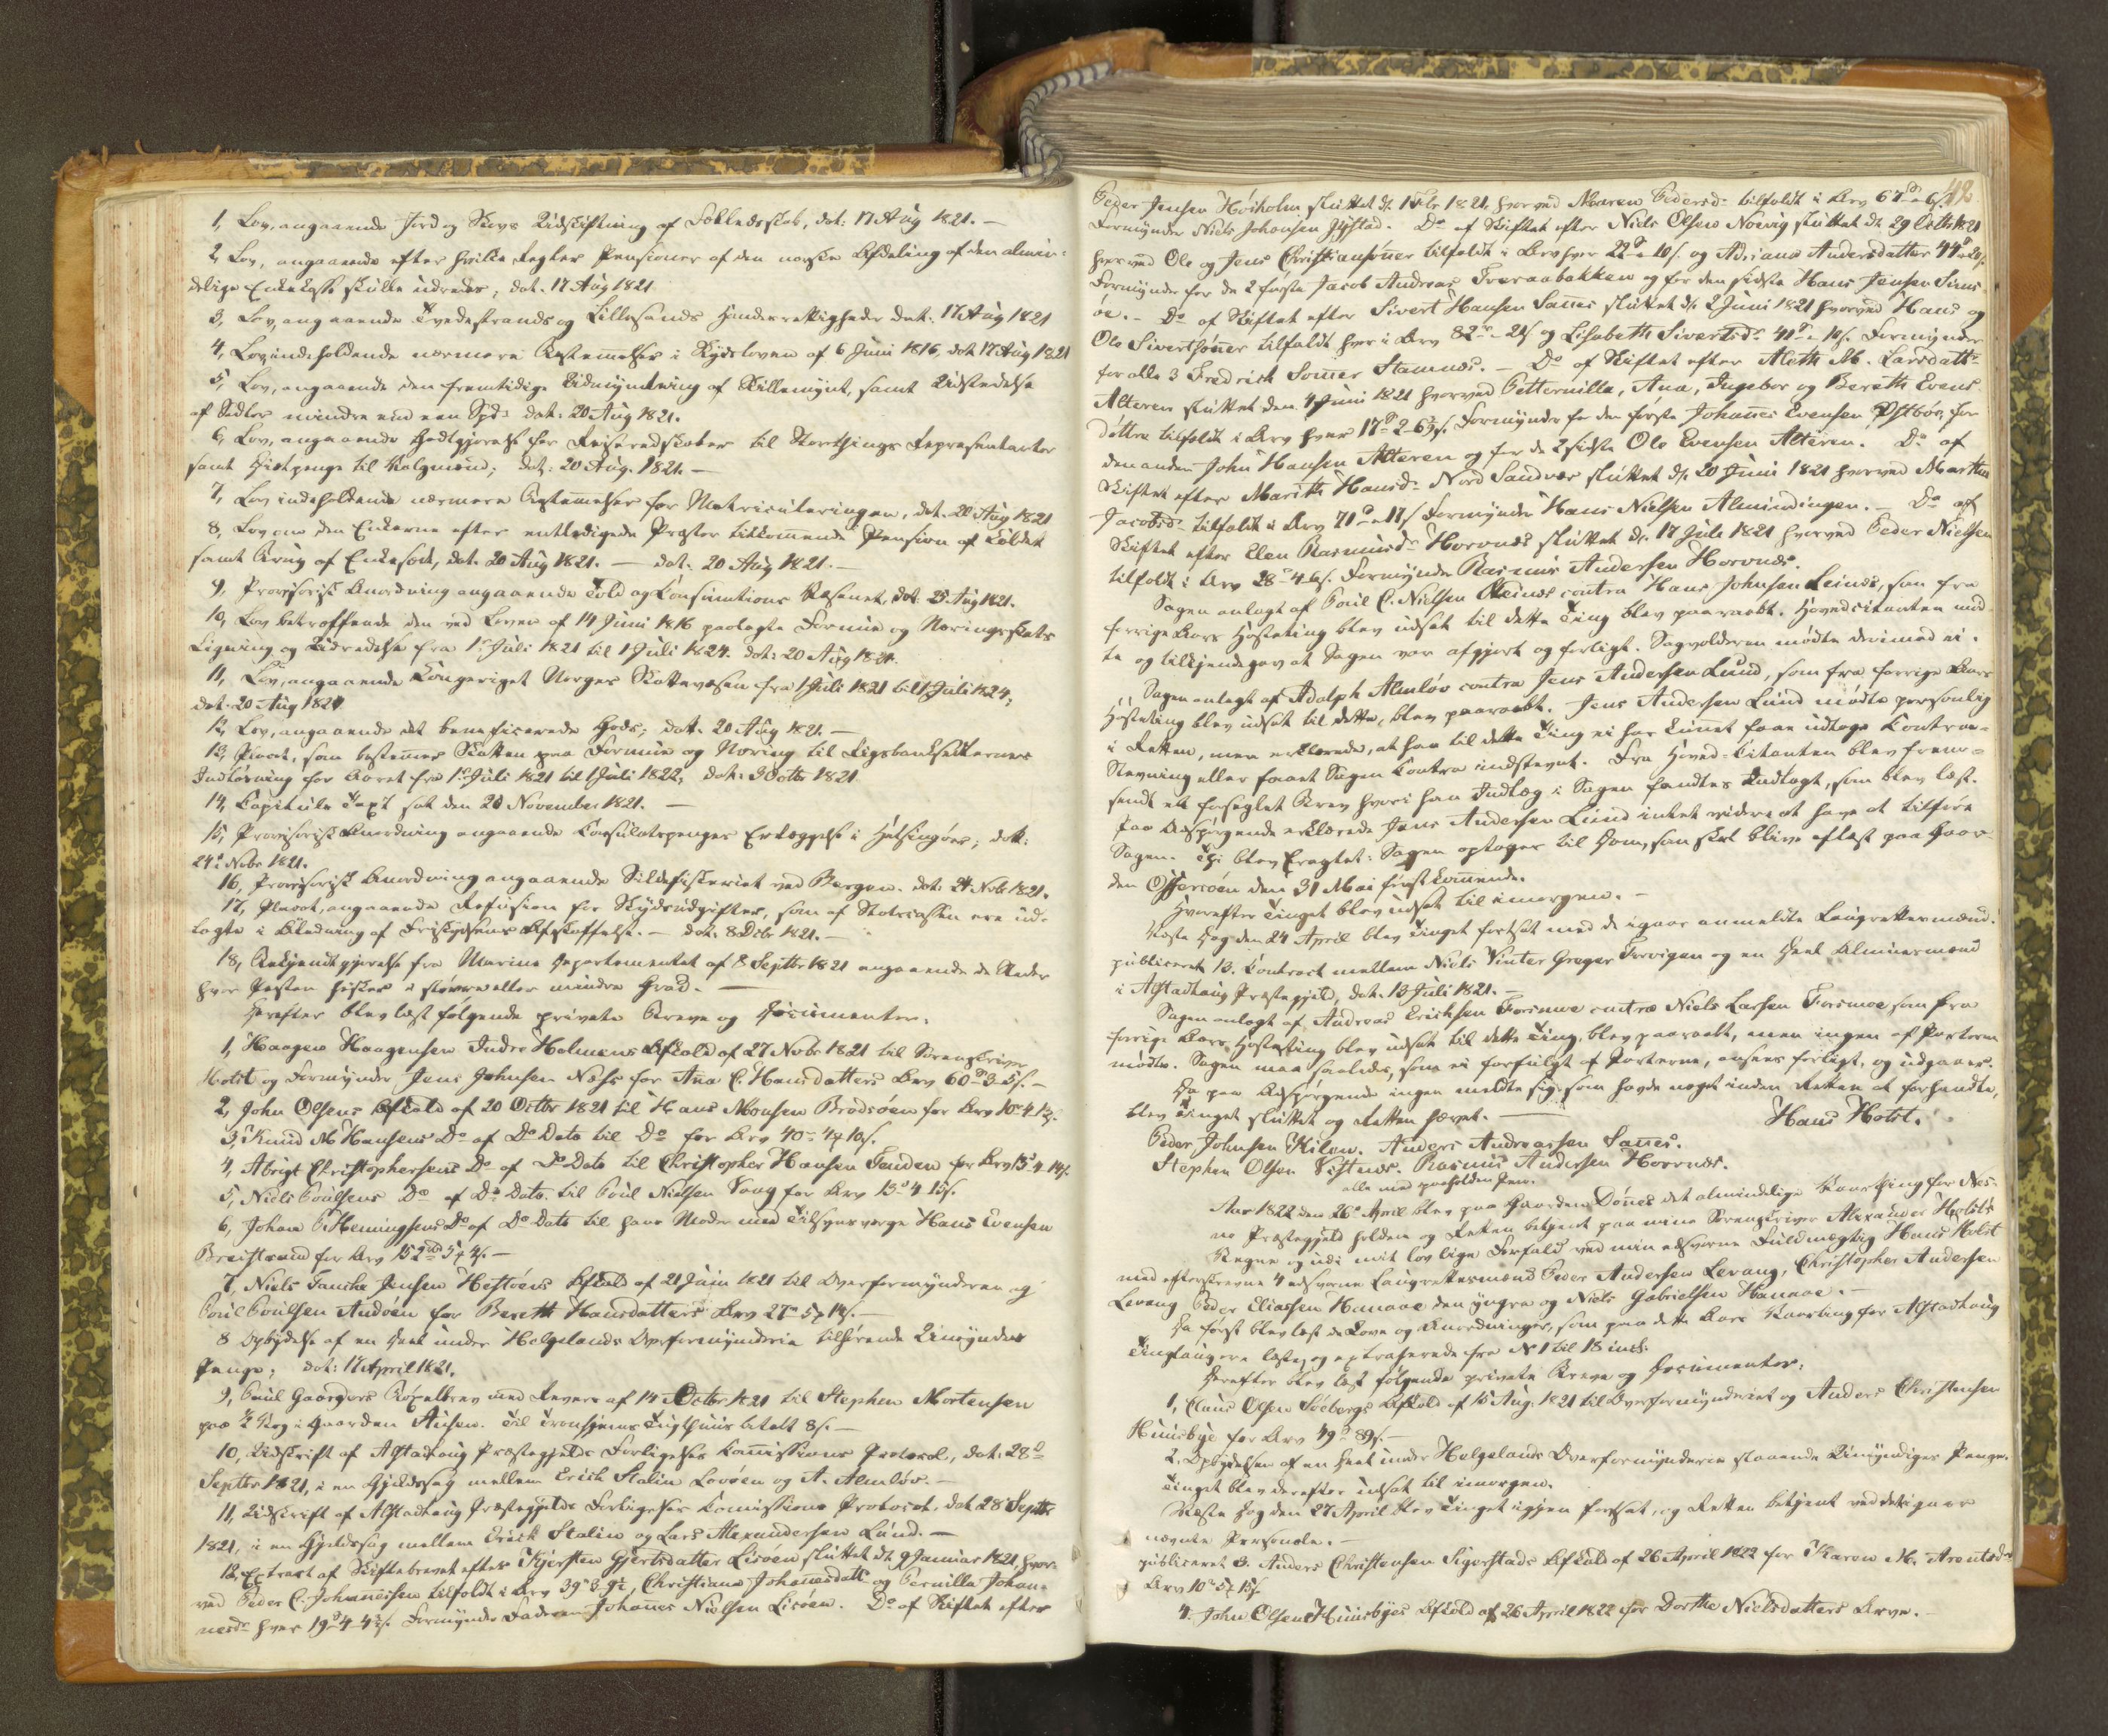 1, Lov, angaaende Jord og Skovs Udskiftning af Fælledsskab, dat: 17 Aug 1821. —
2, Lov, angaaende efter hvilke Regler Pensioner af den norske Afdeling af den almin-
delige Enkekasse skulle udredes, dat. 17 Aug 1821.
3, Lov, angaaende Tvedestrands og Lillesands Handelsrettigheder dat. 17 Aug 1821
4, Lov, indeholdende nærmere Bestemmelser i Skydsloven af 6 Juni 1816, dat 17 Aug 1821
5, Lov, angaaende den fremtidige Udmyntning af Skillemynt, samt Udstedelse
af Sedler mindre end een Spd: dat. 20 Aug 1821.
6, Lov, angaaende Godtgjørelse for Reiseredskaber til Storthings Repræsentanter
samt Diætpenge til Valgmænd; dat: 20 Aug. 1821. —
7, Lov indeholdende nærmere Bestemmelser for Matriculeringen, dat. 20 Aug 1821
8, Lov om den Enkerne efter entledigede Præster tilkommende Pension af Kaldet
samt Brug af Enkesæde, dat. 20 Aug 1821. — dat. 20 Aug 1821. —
9, Provisorisk Anordning angaaende Told og Consumtions Væsenet, dat. 25 Aug 1821.
10, Lov betræffende den ved Loven af 14 Juni 1816 paalagte Formue og Næringsskats
Ligning og Udredelse fra 1 Juli 1821 til 1 Juli 1824. dat: 20 Aug 1821.
11, Lov, angaaende Kongeriget Norges Skattevæsen fra 1 Juli 1821 til 1 Juli 1824,
dat. 20 Aug 1821
12, Lov, angaaende det beneficerede Gods; dat. 20 Aug 1821. —
13, Placat, som bestemmer Skatten paa Formue og Næring til Rigsbanksedlernes
Indløsning for Aaret fra 1 Juli 1821 til 1 Juli 1822, dat: 3 Octbr 1821
14, Capituls Taxt sat den 20 November 1821. —
15, Provisorisk Anordning angaaende Consulatspenges Erlæggelse i Helsingøer; dat:
24 Novbr 1821.
16, Provisorisk Anordning angaaende Sildefiskeriet ved Bergen. dat: 24 Novbr 1821.
17, Placat, angaaende Refusion for Skydsudgifter, som af Statscassen ere ud-
lagte i Anledning af Friskydsens Afskaffelse. — dat. 8 Decbr 1821. —
18, Bekjendtgjørelse fra Marine Departementet af 8 Septbr 1821 angaaende de Steder
hvor Pesten hersker i større eller mindre Grad. —
Herefter blev læst følgende private Breve og Documenter.
1, Haagen Haagensen Indre Holmens Afkald af 27 Novbr 1821 til Sorenskriver
Holst og Formynder Jens Johnsen Næss for Ana C. Hansdatters Arv 60 3 5 s. —
2, John Olsens Afkald af 20 Octbr 1821 til Hans Monsen Brødsøen for Arv 10 4 13 s.
3, Knud M Hansens Do af Do Dato til Do for Arv 40 4 10 s.
4, Abrigt Christophersens Do af Do Dato til Christopher Hansen Tenden for Arv 13 4 14 s.
5, Niels Poulsens Do af Do Dato til Poul Nielsen Vaag for Arv 13 4 15 s.
6, Johan P Hemingsens Do af Do Dato til hans Moder med Tilsynsværge Hans Evensen
Breistrand for Arv 152 5 4 s. —
7, Niels Fanche Jensen Hestøens Afkald af 21 Juni 1821 til Overformynderen og
Poul Poulsen Andøen for Bereth Hansdatters Arv 27 5 14 s. —
8 Opbydelse af en Deel under Helgelands Overformynderie tilhørende Umyndes
Penge; dat: 17 April 1821.
9, Poul Gaarders Bøxelbrev med Revers af 14 Octbr 1821 til Stephen Mortensen
paa 1/2 Vog i Gaarden Ausen. Til Tronhjems Tugthuus betalt 8 s. —
10, Udskrift af Alstadhoug Præstegjelds Forligelses Commissions Protocol, dat. 28
Septbr 1821, i en Gjeldssag mellem Erich Stalin Løvøen og A. Almløv. —
11, Udskrift af Alstadhoug Præstegjelds Forligelses Commissions Protocol, dat 28 Septbr
1821, i en Gjeldssag mellem Erich Stalin og Lars Alexandersen Lund. —
12, Extract af Skiftebrevet efter Kjersten Gjertsdatter Lisøen sluttet d. 9 Januar 1821, hvor-
ved Peder C. Johannessen tilfaldt i Arv 39 3 9 1/2, Christiana Johannesdatt og Pernilla Johan-
nesdr hver 19 4 4 3/4 s. Formynder Faderen Johannes Nielsen Lisøen. Do af Skiftet efter
42
Peder Jensen Høiholm sluttet d. 1 Febr 1821, hvorved Maren Pedersdr tilfaldt i Arv 67 6 s.
Formynder Niels Johansen Jystad. Do af Skiftet efter Niels Olsen Norvig sluttet d. 29 Octbr 1821
hvorved Ole og Jens Christiansønner tilfaldt i Arv hver 22 10 s. og Adriana Andersdatter 44 20 s.
Formynder for de 2 første Jacob Andreas Treraabakken og for den sidste Hans Jensen Sund-
øe. — Do af Skiftet efter Sivert Hansen Sannes sluttet d. 2 Juni 1821 hvorved Hans og
Ole Sivertsønner tilfaldt hver i Arv 82 21 s og Lisabeth Sivertsdr 41 10 s. Formynder
for alle 3 Fredrich Sommer Stamnes. — Do af Skiftet efter Aleth M. Larsdattr
Alteren sluttet den 4 Juni 1821 hvorved Petternilla, Ana, Ingebor og Bereth Evens-
døttre tilfaldt i Arv hver 17 2 6 3/4 s. Formynder for den første Johannes Evensen Østbøe, for
den anden John Hansen Alteren og for de 2 sidste Ole Evensen Alteren. Do af
Skiftet efter Marith Hansdr Nord Sandvær sluttet d. 20 Juni 1821 hvorved Martha
Jacobsdr tilfaldt i Arv 71 17 s Formynder Hans Nielsen Almindingen. — Do af
Skiftet efter Elen Rasmusdr Horvnes sluttet d. 17 Juli 1821 hvorved Peder Nielsen
tilfaldt i Arv 28 4 6 s. Formynder Rasmus Andersen Horvnes.
Sagen anlagt af Poul C. Nielsen Leines contra Hans Johnsen Leines, som fra
forrige Aars Høsteting blev udsat til dette Ting blev paaraabt. Hovedcitanten mød-
te og tilkjendegav at Sagen var afgjort og forligt. Sagvolderen mødte derimod ei.
Sagen anlagt af Adolph Almløv contra Jens Andersen Lund, som fra forrige Aars
Høsteting blev udsat til dette, blev paaraabt. Jens Andersen Lund mødte personlig
i Retten, men erklærede, at han til dette Ting ei har kunnet faae udtage Contra-
Stevning eller faaet Sagen Contra indstevnt. Fra Hoved-Citanten blev frem-
sendt et forseglet Brev hvori hans Indlæg i Sagen fandtes indlagt, som blev læst.
Paa Adspørgende erklærede Jens Andersen Lund intet videre at have at tilføre
Sagen. Thi blev Eragtet: Sagen optages til Dom, som skal blive aflæst paa Gaar-
den Offersøen den 31 Mai førstkommende.
Hvorefter Tinget blev udsat til imorgen. —
Næste Dag den 24 April blev Tinget fortsat med de igaar anmeldte Laugrettesmænd.
publiceret 13. Contract mellem Niels Vinter Greger Forvigen og en Deel Almuesmænd
i Alstadhoug Præstegjeld, dat. 13 Juli 1821. —
Sagen anlagt af Andreas Erichsen Forsmoe contra Niels Larsen Forsmoe som fra
forrige Aars Høsteting blev udsat til dette Ting, blev paaraabt, men ingen af Parterne
mødte. Sagen maa saaledes, som ei forfulgt af Parterne, ansees forligt, og udgaaer.
Da paa Adspørgende ingen meldte sig, som havde noget inden Retten at forhandle,
blev Tinget sluttet og Retten hævet. — Hans Holst.
Peder Johnsen Kilen. Anders Andreassen Sannes.
Stephen Olsen Vistnes. Rasmus Andersen Horvnes.
alle med paaholden Pen.
Aar 1822 den 26 April blev paa Gaarden Dønnes det almindelige Vaarthing for Nes-
ne Præstegjeld holden og Retten betjent paa mine Sorenskriver Alexander Holsts
Vegne og udi mit lovlige Forfald ved min edsvorne Fuldmægtig Hans Holst
med efterskrevne 4 edsvorne Laugrettesmænd Peder Andersen Levang, Christopher Andersen
Levang Peder Eliassen Hamaae den yngre og Niels Gabrielsen Hamaae. —
Da først blev læst de Love og Anordninger, som paa dette Aars Vaarting for Alstadhoug
Tinglaug ere læste og extraherede fra No 1 til 18 incl.
Herefter blev læst følgende private Breve og Documenter:
1, Claus Olsen Soebergs Afkald af 15 Aug. 1821 til Overformynderiet og Anders Christensen
Huusbye for Arv 49 89 s. —
2. Opbydelsen af en Deel under Helgelands Overformynderie staaende Umyndiges Penge.
Tinget blev derefter udsat til imorgen.
Næste Dag den 27 April blev Tinget igjen fortsat, og Retten betjent ved det igaar
nævnte Personale. —
publiceret 3. Anders Christensen Sigerstads Afkald af 26 April 1822 for Karen M. Arentsdrs
Arv 10 5 15 s.
4. John Olsen Huusbyes Afkald af 26 April 1822 for Dorthe Nielsdatters Arve. —